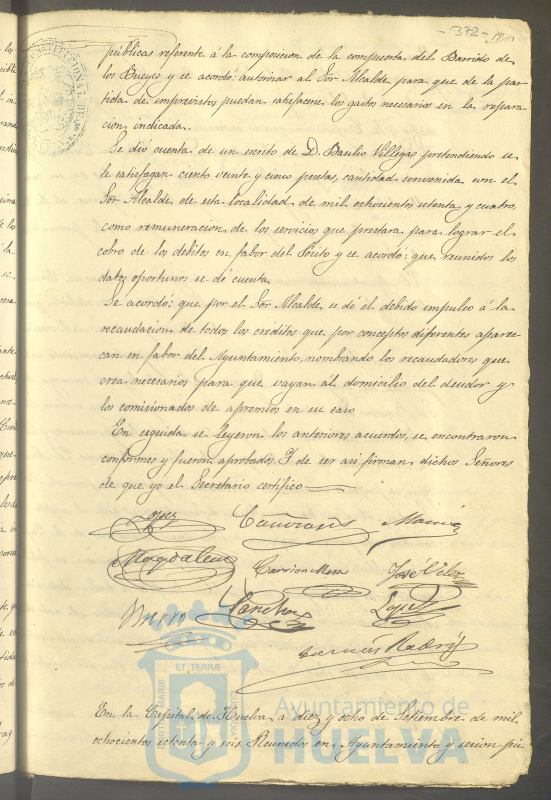 - 372 -
públicas referente á la composicion de la compuerta del Barrido de
los Bueyes y se acordó: autorizar al Sor Alcalde para que de la par-
tida de imprevistos puedan satisfacerse los gastos necesarios en la repara-
cion indicada.
Se dió cuenta de un escrito de D. Basilio Villegas pretendiendo se
le satisfagan ciento veinte y cinco pesetas, cantidad convenida con el
Sor Alcalde de esta localidad de mil ochocientos setenta y cuatro,
como remuneracion de los servicios que prestara para lograr el
cobro de los debitos en fabor del Pósito y se acordó: que reunidos los
datos oportunos se dé cuenta.
Se acordó: que por el Sor Alcalde, se dé el debido impulso á la
recaudacion de todos los creditos que por conceptos diferentes apare-
can en fabor del Ayuntamiento, nombrando los recaudadores que
crea necesarios para que vayan al domicilio del deudor y
los comisionados de apremios en su caso
En seguida se leyeron los anteriores acuerdos, se encontraron
conformes y fueron aprobados. Y de ser asi firman dichos Señores
de que yo el Secretario certifico
Lopez
Magdalena Carrion Mesa José Velez
Sanchez Lopez
En la Capital de Huelva á diez y ocho de Setiembre de mil
ochocientos setenta y seis Reunidos en Ayuntamiento y sesion pú-
Ayuntamiento de
HUELVA